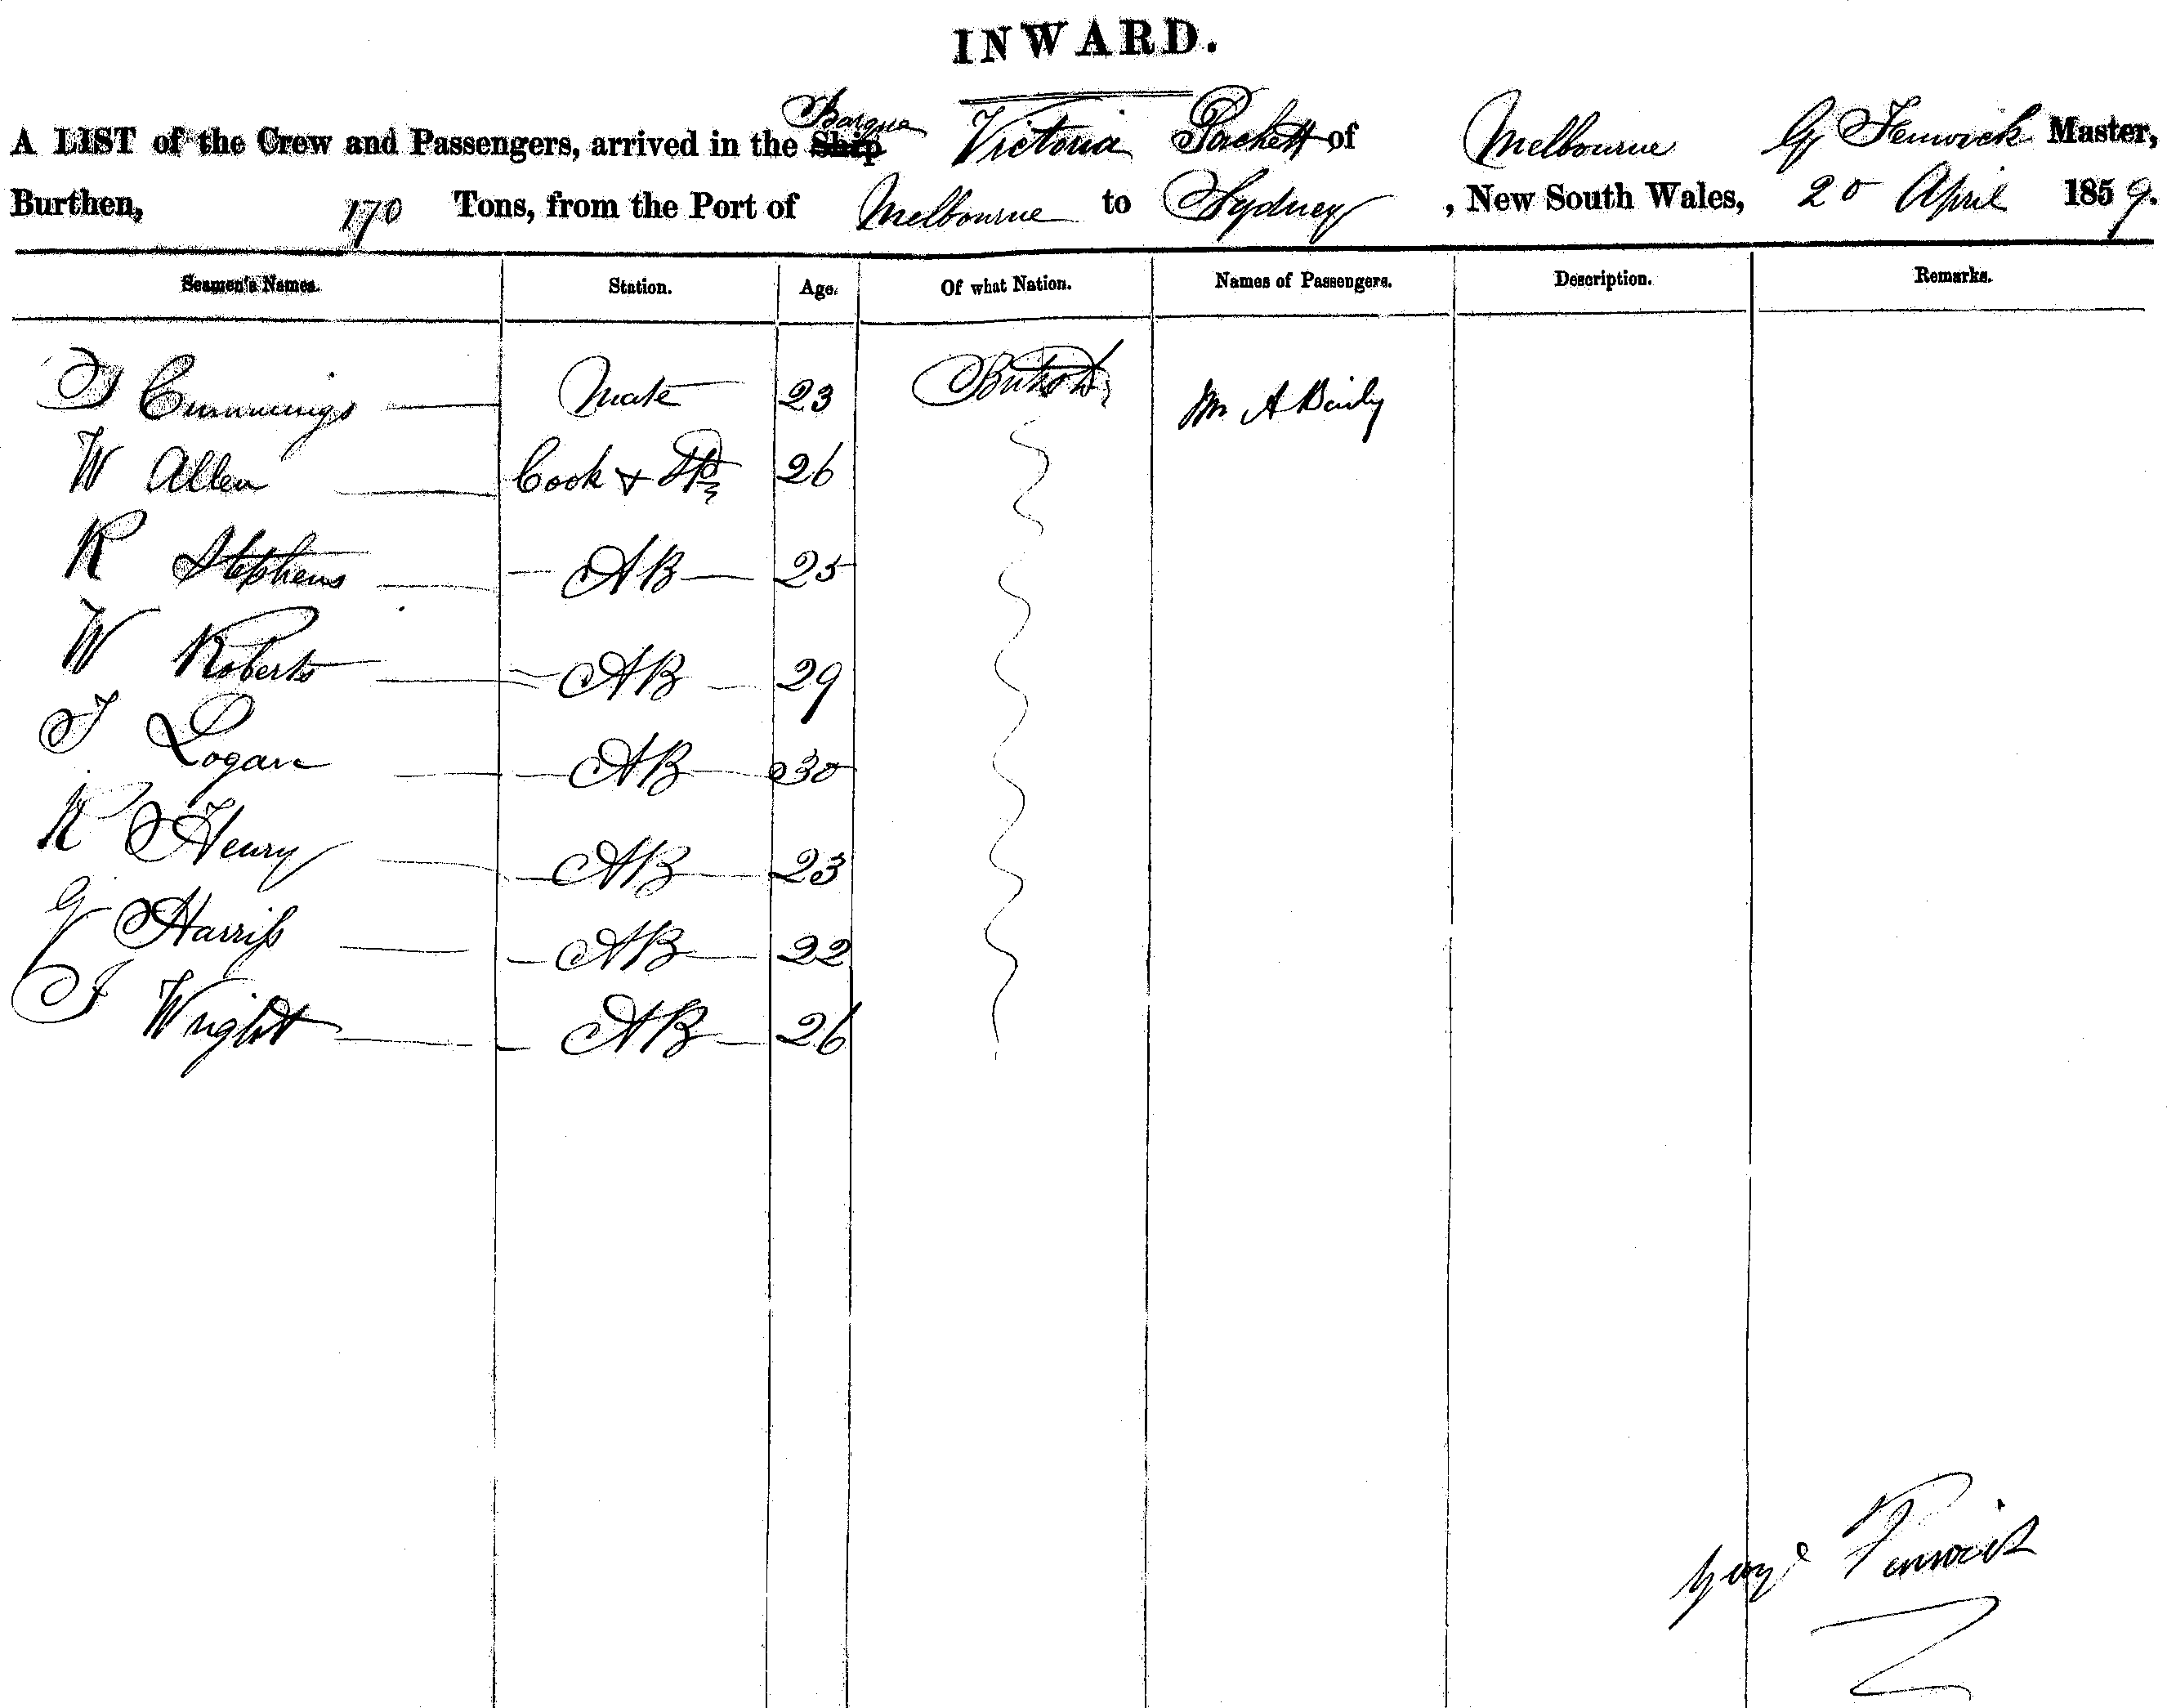 INWARD.
A LIST of the Crew and Passengers, arrived in the Ship Barque Victoria Packett of Melbourne G Fenwick Master,
Burthen, 170 Tons, from the Port of Melbourne to Sydney, New South Wales, 20 April 1859.
Seamen's Names. Station. Age. Of what Nation. Names of Passengers. Description. Remarks.
Cummings Mate 23 British Mr A Baily
W Allen Cook & 26
R Stephens AB 25
W Roberts AB 29
J Logan AB 30
R Henry AB 23
G Harriss AB 22
J Wright AB 26
George Fenwick